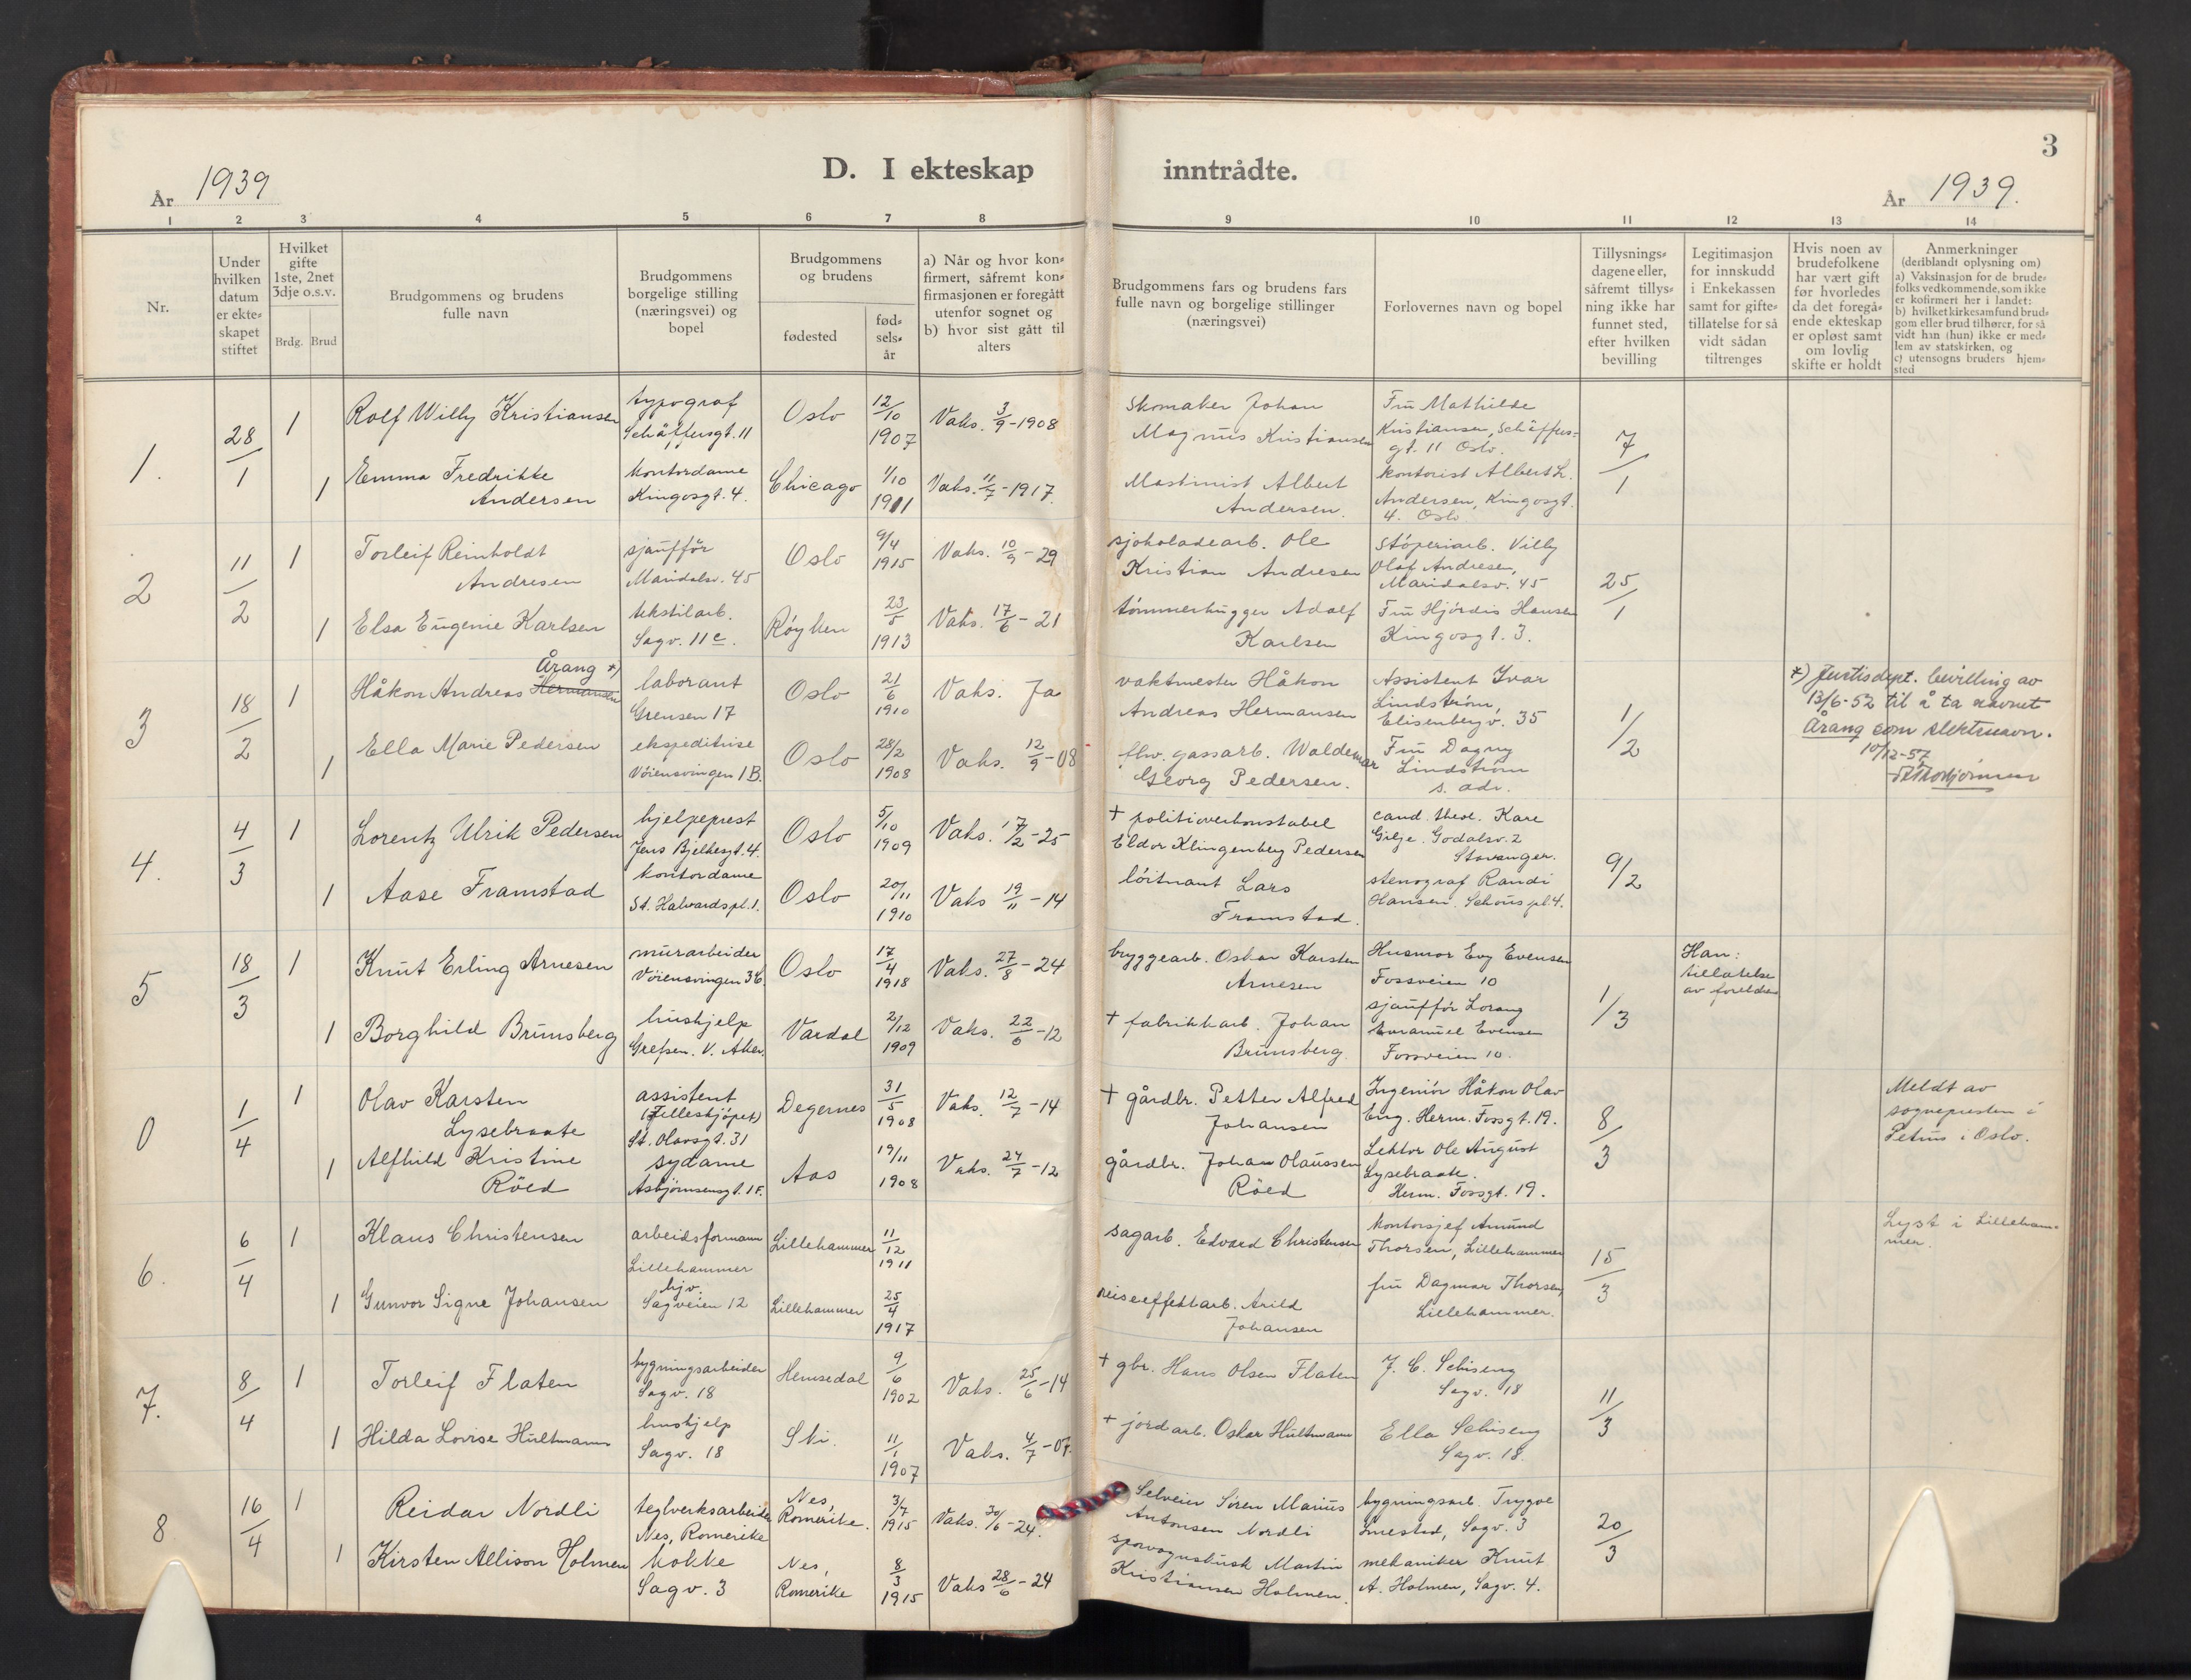 3
År 1939
D. I ekteskap inntrådte.
År 1939.
1 2 3 4 5 6 7 8 9 10 11 12 13 14
Nr.
Under
hvilken
datum
er ekte-
skapet
stiftet
Hvilket
gifte
1ste, 2net
3dje o.s.v.
Brdg. Brud
Brudgommens og brudens
fulle navn
Brudgommens
borgelige stilling
(næringsvei) og
bopel
Brudgommens
og brudens
fødested
fød-
sels-
år
a) Når og hvor kon-
firmert, såfremt kon-
firmasjonen er foregått
utenfor sognet og
b) hvor sist gått til
alters
Brudgommens fars og brudens fars
fulle navn og borgelige stillinger
(næringsvei)
Forlovernes navn og bopel
Tillysnings-
dagene eller,
såfremt tillys-
ning ikke har
funnet sted,
efter hvilken
bevilling
Legitimasjon
for innskudd
i Enkekassen
samt for gifte-
tillatelse for så
vidt sådan
tiltrenges
Hvis noen av
brudefolkene
har vært gift
før hvorledes
da det foregå-
ende ekteskap
er opløst samt
om lovlig
skifte er holdt
Anmerkninger
(deriblandt oplysning om)
a) Vaksinasjon for de brude-
folks vedkommende, som ikke
er kofirmert her i landet:
b) hvilket kirkesamfund brud-
gom eller brud tilhører, for så
vidt han (hun) ikke er med-
lem av statskirken, og
c) utensogns bruders hjem-
sted
1.
28/1
1
Rolf Willy Kristiansen
typograf
Schäffersgt. 11
Oslo
12/10
1907
Vaks. 3/9-1908
Skomaker Johan
Magnus Kristiansen
Fru Mathilde
Kristiansen, Schäffers-
gt. 11 Oslo.
7/1
1
Emma Fredrikke
Andersen
kontordame
Kingosgt. 4.
Chicago
1/10
1911
Vaks. 11/7-1917.
Maskinist Albert
Andersen.
kontorist Albert L.
Andersen, Kingosgt.
4. Oslo
2
11/2
1
Torleif Reinholdt
Andresen
sjauffør
Maridalsv. 45
Oslo
9/4
1915
Vaks. 10/9-29
sjokoladearb. Ole
Kristian Andresen
Støperiarb. Villy
Olaf Andresen,
Maridalsv. 45
25/1
1
Elsa Eugenie Karlsen
tekstilarb.
Sagv. 11c.
Røyken
23/5
1913
Vaks. 17/6-21
tømmerhugger Adolf
Karlsen
Fru Hjørdis Hansen
Kingosgt. 3.
3
18/2
1
Årang *)
Håkon Andreas Hermansen
laborant
Grensen 17
Oslo
21/6
1910
Vaks. Ja
vaktmester Håkon
Andreas Hermansen
Assistent Ivar
Lindstrøm,
Elisenbergv. 35
1/2
*) Justisdept. bevilling av
13/6-52 til å ta navnet
Årang som slektsnavn.
10/12-57
1
Ella Marie Pedersen
ekspeditrise
Vøiensvingen 1B.
Oslo
28/2
1908
Vaks. 12/9-08
fhv. gassarb. Waldemar
Georg Pedersen.
Fru Dagny
Lindstrøm
s. adr.
4.
4/3
1
Lorentz Ulrik Pedersen
hjelpeprest
Jens Bjelkesgt. 4.
Oslo
5/10
1909
Vaks. 17/2-25
+ politioverkonstabel
Eldor Klingenberg Pedersen
cand. theol. Kare
Gilje. Godalsv. 2
Stavanger.
9/2
1
Aase Framstad
kontordame
St. Halvardspl. 1.
Oslo
20/11
1910
Vaks 19/11-14
løitnant Lars
Framstad.
stenograf Randi
Hansen. Schous pl. 4.
5
18/3
1
Knut Erling Arnesen
murarbeider
Vøiensvingen 3C.
Oslo
17/4
1918
Vaks. 27/8-24
bryggearb. Oskar Karsten
Arnesen
Husmor Evy Evensen
Fossveien 10
1/3
Han:
tillatelse
av foreldrene
1
Borghild Brunsberg
hushjelp
Grefsen. V. Aker.
Vardal
2/12
1909
Vaks. 22/6-12
+ fabrikkarb. Johan
Brunsberg.
sjauffør Lorang
Emanuel Evensen
Fossveien 10.
0
1/4
1
Olav Karsten
Lysebraate
assistent
(Felleskjøpet)
St. Olavsgt. 31
Degernes
31/5
1908
Vaks. 12/7-14
+ gårdbr. Petter Alfred
Johansen
Ingeniør Håkon Olav
Eng. Herm. Fossgt. 19.
8/3
Meldt av
sognepresten i
Petrus i Oslo.
1
Alfhild Kristine
Röed
sydame
Asbjørnsensgt. 1F.
Aas
19/11
1908
Vaks. 24/7-12
gårdbr. Johan Olaussen
Röed
Lektor Ole August
Lysebraate.
Herm. Fossgt. 19.
6.
6/4
1
Klaus Christensen
arbeidsformann
Lillehammer
Lillehammer
11/12
1911
sagarb. Edvard Christensen
kontorsjef Amund
Thorsen, Lillehammer
15/3
Lyst i Lilleham-
mer.
1
Gunvor Signe Johansen
hjv.
Sagveien 12
Lillehammer
25/4
1917
reiseeffektarb. Arild
Johansen
fru Dagmar Thorsen,
Lillehammer.
7.
8/4
1
Torleif Flaten
bygningsarbeider
Sagv. 18
Hemsedal
9/6
1902
Vaks. 25/6-14
+ gbr. Hans Olsen Flaten
J. C. Schiseng
Sagv. 18
11/3
1
Hilda Lovise Hultmann
hushjelp
Sagv. 18
Ski.
11/1
1907
Vaks. 4/7-07.
+ jordarb. Oskar Hultmann
Ella Schiseng
Sagv. 18.
8
16/4
1
Reidar Nordli
teglverksarbeider
Nes, Romerike
Nes,
Romerike.
3/7
1915
Vaks. 30/6-24.
Selveier Søren Marius
Antonsen Nordli
bygningsarb. Trygve
Smestad, Sagv. 3
20/3
1
Kirsten Allison Holmen
kokke
Sagv. 3
Nes,
Romerike
8/3
1915
Vaks 28/6-24
sporvognskusk Martin
Kristiansen Holmen.
mekaniker Knut
A. Holmen, Sagv. 4.